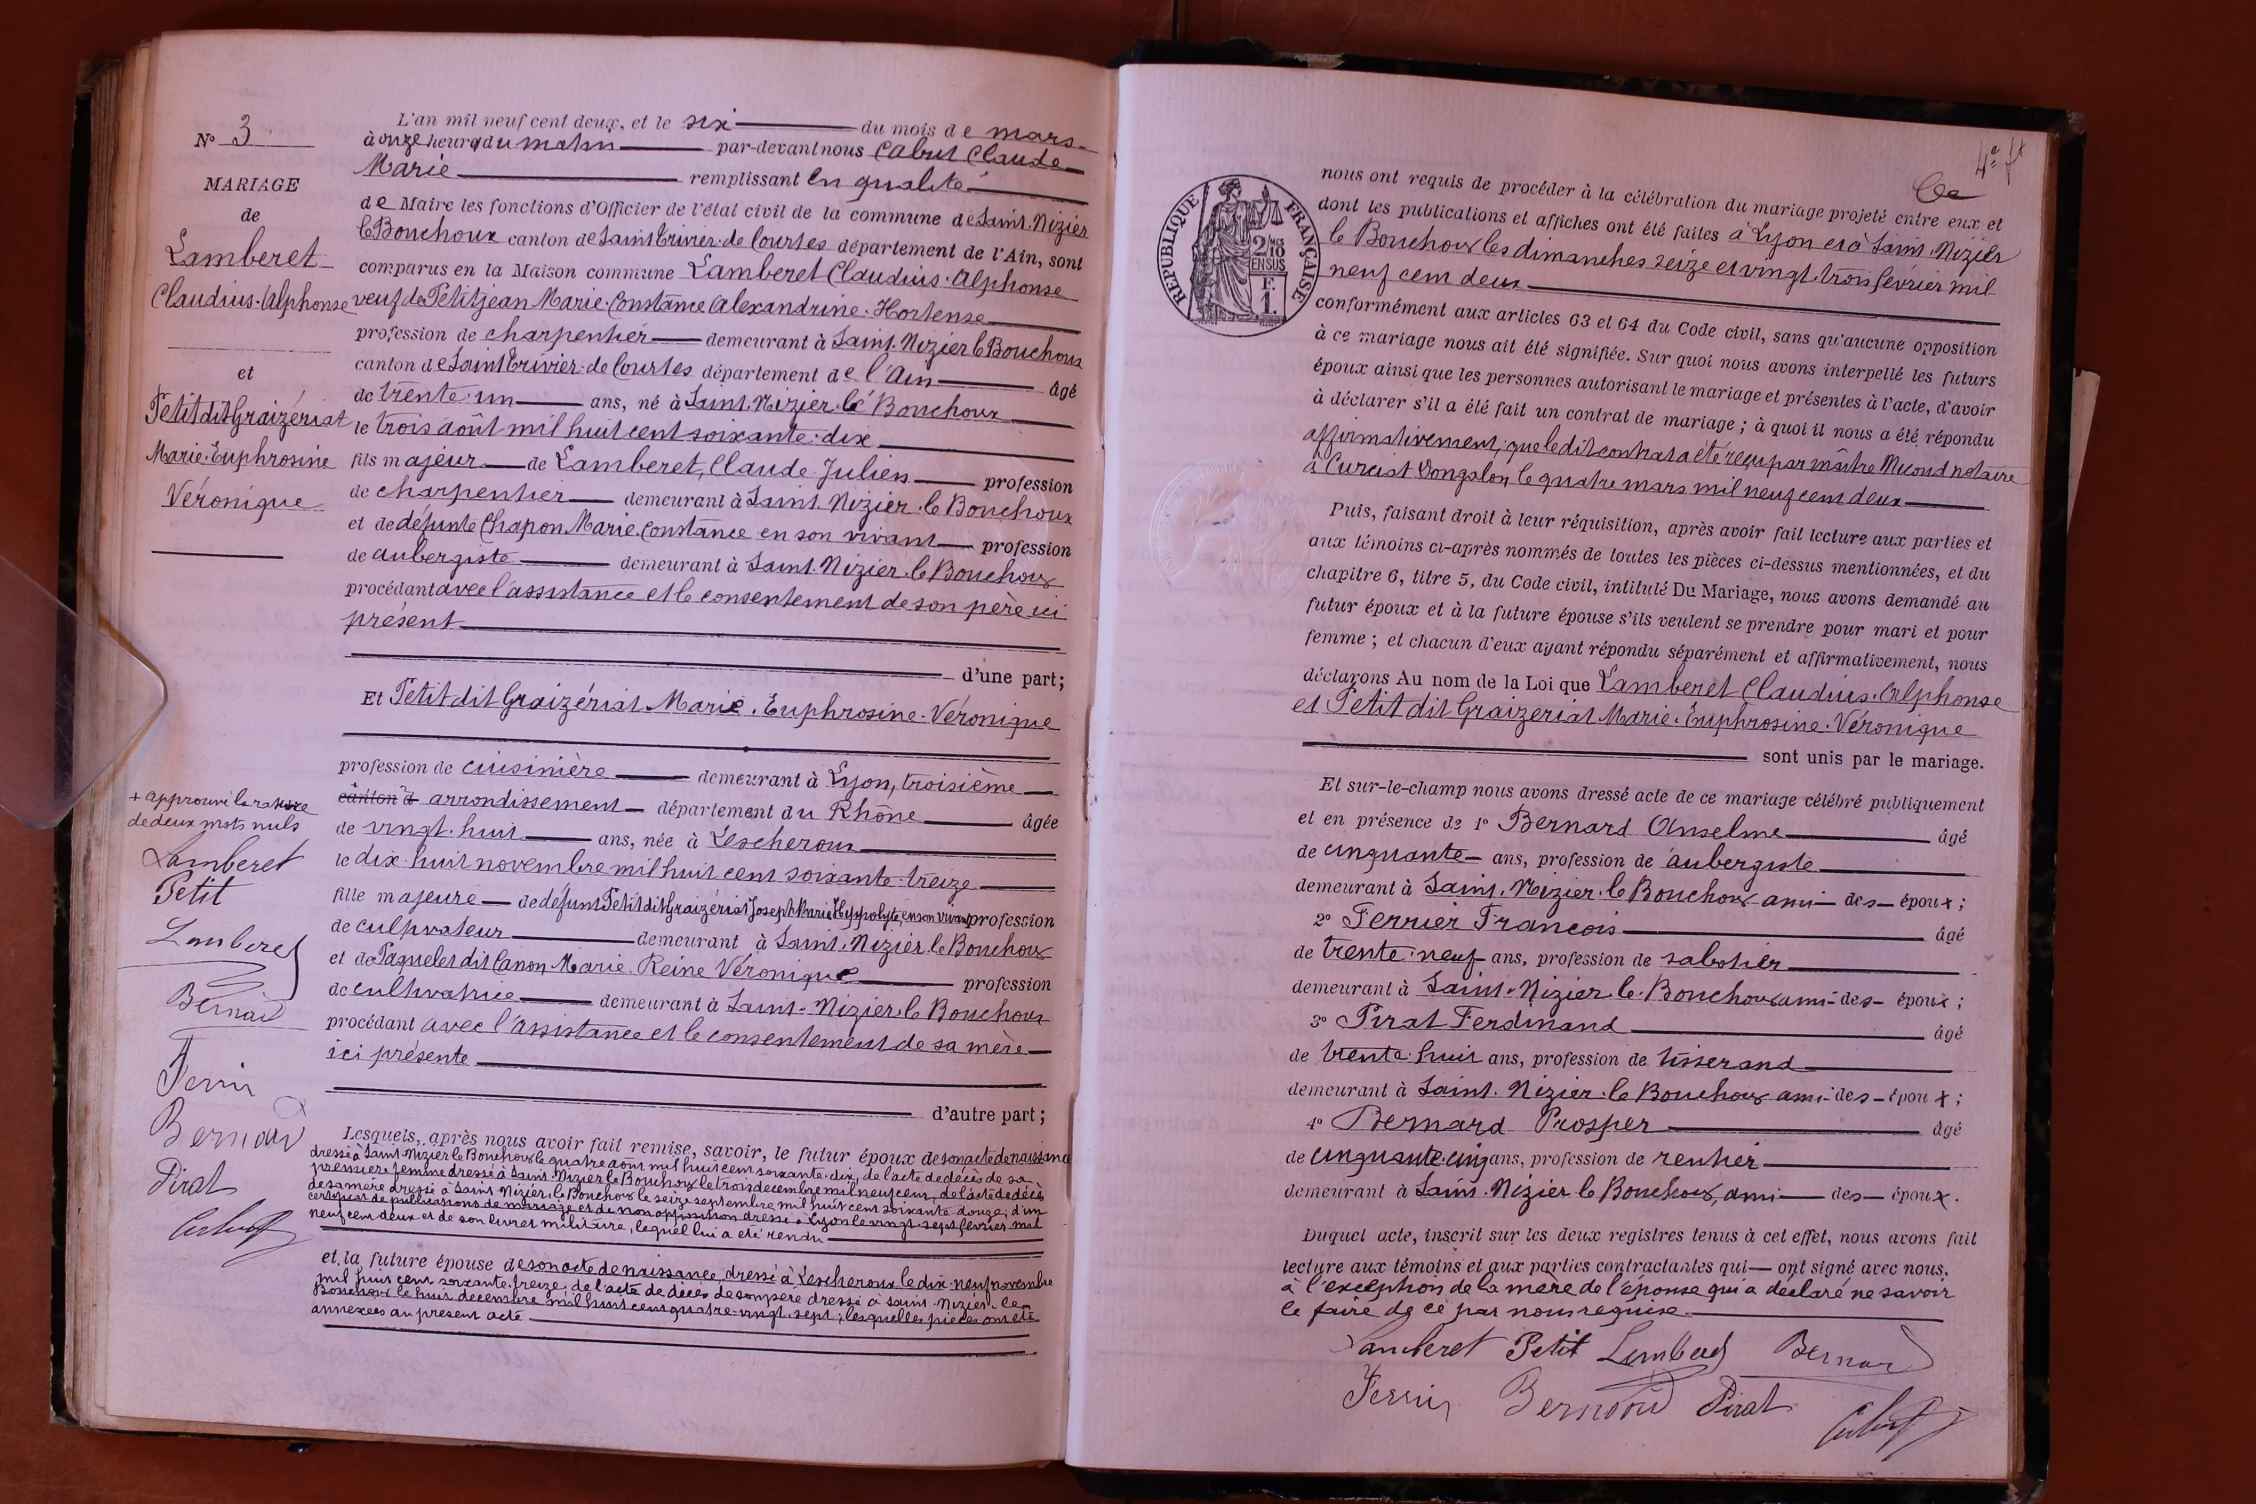 N° 3
MARIAGE
de
Lamberet
Claudius-Alphonse
et
Petit dit Graizériat
Marie-Euphrosine
Véronique
L'an mil neuf cent deux, et le six du mois de mars
à onze heures du matin par-devant nous Cabut Claude
Marie remplissant en qualité
de Maire les fonctions d'Officier de l'état civil de la commune de Saint-Nizier
le Bouchoux canton de Saint Trivier-de Courtes département de l'Ain, sont
comparus en la Maison commune Lamberet Claudius-Alphonse
veuf de Petitjean Marie-Constance Alexandrine-Hortense
profession de charpentier demeurant à Saint-Nizier le Bouchoux
canton de Saint Trivier-de Courtes département de l'Ain âgé
de trente-un ans, né à Saint-Nizier-le Bouchoux
le trois août mil huit cent soixante-dix
fils majeur de Lamberet, Claude-Julien profession
de charpentier demeurant à Saint-Nizier-le Bouchoux
et de défunte Chapon Marie-Constance en son vivant profession
de aubergiste demeurant à Saint-Nizier-le Bouchoux
procédant avec l'assistance et le consentement de son père ici
présent
d'une part;
Et Petit dit Graizériat Marie-Euphrosine-Véronique
profession de cuisinière demeurant à Lyon, troisième
canton d arrondissement département du Rhône âgée
de vingt-huit ans, née à Lescheroux
le dix-huit novembre mil huit cent soixante-treize
fille majeure de défunt Petit dit Graizériat Joseph Marie Hyppolyte, en son vivant profession
de cultivateur demeurant à Saint-Nizier le Bouchoux
et de Paquelet dit Canon Marie-Reine Véronique profession
de cultivatrice demeurant à Saint-Nizier le Bouchoux
procédant avec l'assistance et le consentement de sa mère
ici présente
d'autre part;
+ approuvé la rature
de deux mots nuls
Lamberet
Petit
Lamberet
Bernard
Ferrier
Bernard
Pirat
Cabut
Lesquels, après nous avoir fait remise, savoir, le futur époux de son acte de naissance
dressé à Saint-Nizier le Bouchoux le quatre août mil huit cent soixante-dix, de l'acte de décès de sa
première femme dressé à Saint-Nizier le Bouchoux le trois décembre mil neuf cent, de l'acte de décès
de sa mère dressé à Saint-Nizier-le Bouchoux le seize septembre mil huit cent soixante-douze, d'un
certificat de publications de mariage et de non opposition dressé à Lyon le vingt-sept février mil
neuf cent deux et de son livret militaire, lequel lui a été rendu
et la future épouse de son acte de naissance dressé à Lescheroux le dix-neuf novembre
mil huit cent soixante-treize, de l'acte de décès de son père dressé à Saint-Nizier-le
Bouchoux le huit décembre mil huit cent quatre-vingt-sept, lesquelles pièces ont été
annexées au présent acte
4e ft
RÉPUBLIQUE FRANÇAISE
2/10 MES
EN SUS
1 F.
nous ont requis de procéder à la célébration du mariage projeté entre eux et
dont les publications et affiches ont été faites à Lyon et à Saint-Nizier
le Bouchoux les dimanches seize et vingt-trois février mil
neuf cent deux
conformément aux articles 63 et 64 du Code civil, sans qu'aucune opposition
à ce mariage nous ait été signifiée. Sur quoi nous avons interpellé les futurs
époux ainsi que les personnes autorisant le mariage et présentes à l'acte, d'avoir
à déclarer s'il a été fait un contrat de mariage; à quoi il nous a été répondu
affirmativement; que ledit contrat a été reçu par maître Micond notaire
à Curciat Dongalon le quatre mars mil neuf cent deux
Puis, faisant droit à leur réquisition, après avoir fait lecture aux parties et
aux témoins ci-après nommés de toutes les pièces ci-dessus mentionnées, et du
chapitre 6, titre 5, du Code civil, intitulé Du Mariage, nous avons demandé au
futur époux et à la future épouse s'ils veulent se prendre pour mari et pour
femme; et chacun d'eux ayant répondu séparément et affirmativement, nous
déclarons Au nom de la Loi que Lamberet Claudius-Alphonse
et Petit dit Graizeriat Marie-Euphrosine-Véronique
sont unis par le mariage.
Et sur-le-champ nous avons dressé acte de ce mariage célébré publiquement
et en présence de 1° Bernard Anselme âgé
de cinquante ans, profession de aubergiste
demeurant à Saint-Nizier-le Bouchoux ami des époux;
2° Ferrier François âgé
de trente-neuf ans, profession de sabotier
demeurant à Saint-Nizier-le-Bouchoux ami des époux;
3° Pirat Ferdinand âgé
de trente-huit ans, profession de tisserand
demeurant à Saint-Nizier-le Bouchoux ami des époux;
4° Bernard Prosper âgé
de cinquante-cinq ans, profession de rentier
demeurant à Saint-Nizier le Bouchoux, ami des époux.
Duquel acte, inscrit sur les deux registres tenus à cet effet, nous avons fait
lecture aux témoins et aux parties contractantes qui ont signé avec nous,
à l'exception de la mère de l'épouse qui a déclaré ne savoir
le faire de ce par nous requise.
Lamberet Petit Lamberet Bernard
Ferrier Bernard Pirat Cabut